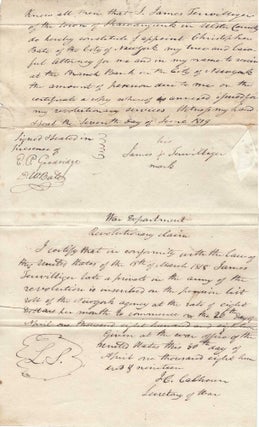 Know all men that I James Terwilliger
of the town of Shawangunk in Ulster County
do hereby constitute & appoint Christopher
Bate of the City of Newyork my true and law
ful Attorney for me in my name to receive
at the Branch Bank in the City of Newyork
the amount of pension due to me on the
certificate a copy whereof is annexed & paid for
my revolutionary services Witness my hand
& seal the Seventh day of June 1819
Signed & Sealed in
Presence of
his
James x Terwilliger
mark
War Department
Revolutionary Claim
I certify that in conformity with the Law of
the United States of the 18th March 1818 James
Terwilliger late a private in the army of the
revolution is inscribed on the pension list
roll of the Newyork agency at the rate of eight
dollars per month to commence on the 26th day of
April one thousand eight hundred and eighteen
Given at the war office of the
united States this day of
April one thousand eight hun
dred & nineteen
L.S.
J C. Calhoun
Secretary of War